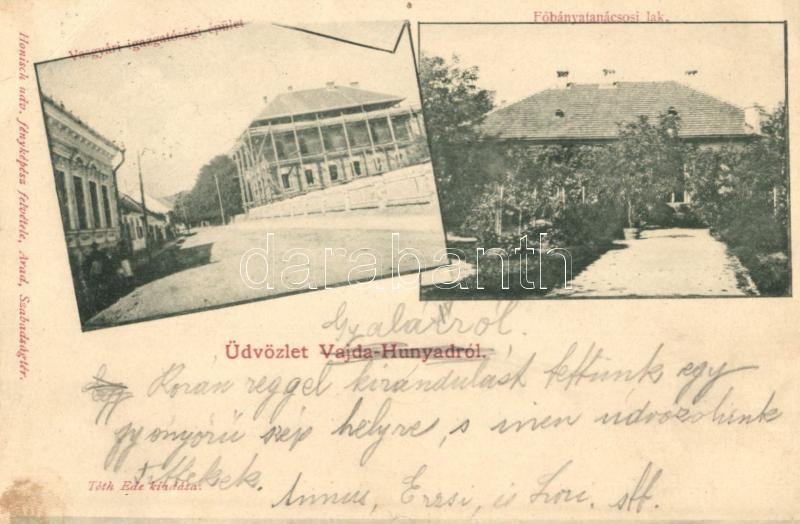 Vasgyári igazgatósági épület
Főbányatanácsosi lak.
Honisch udv. fényképész felvétele, Arad, Szabadságtér.
darabanth.com
Gyalárról.
Üdvözlet Vajda-Hunyadról.
Korán reggel kirándulást tettünk egy
gyönyörű szép helyre, s innen üdvözölünk
Titeket.
Tóth Ede kiadása.
Annus, Erzsi, és